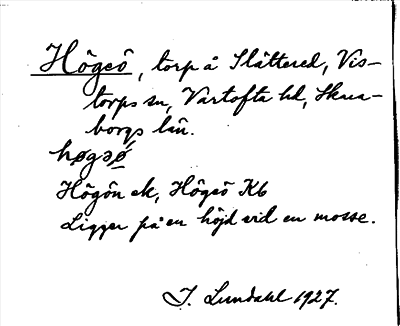 Högeö, torp å Slättered, Vis-
torps sn, Vartofta hd, Skara-
borgs län.
høgəǿ
Högön ek, Högeö Kb
Ligger på en höjd vid en mosse.
J. Lundahl 1927.